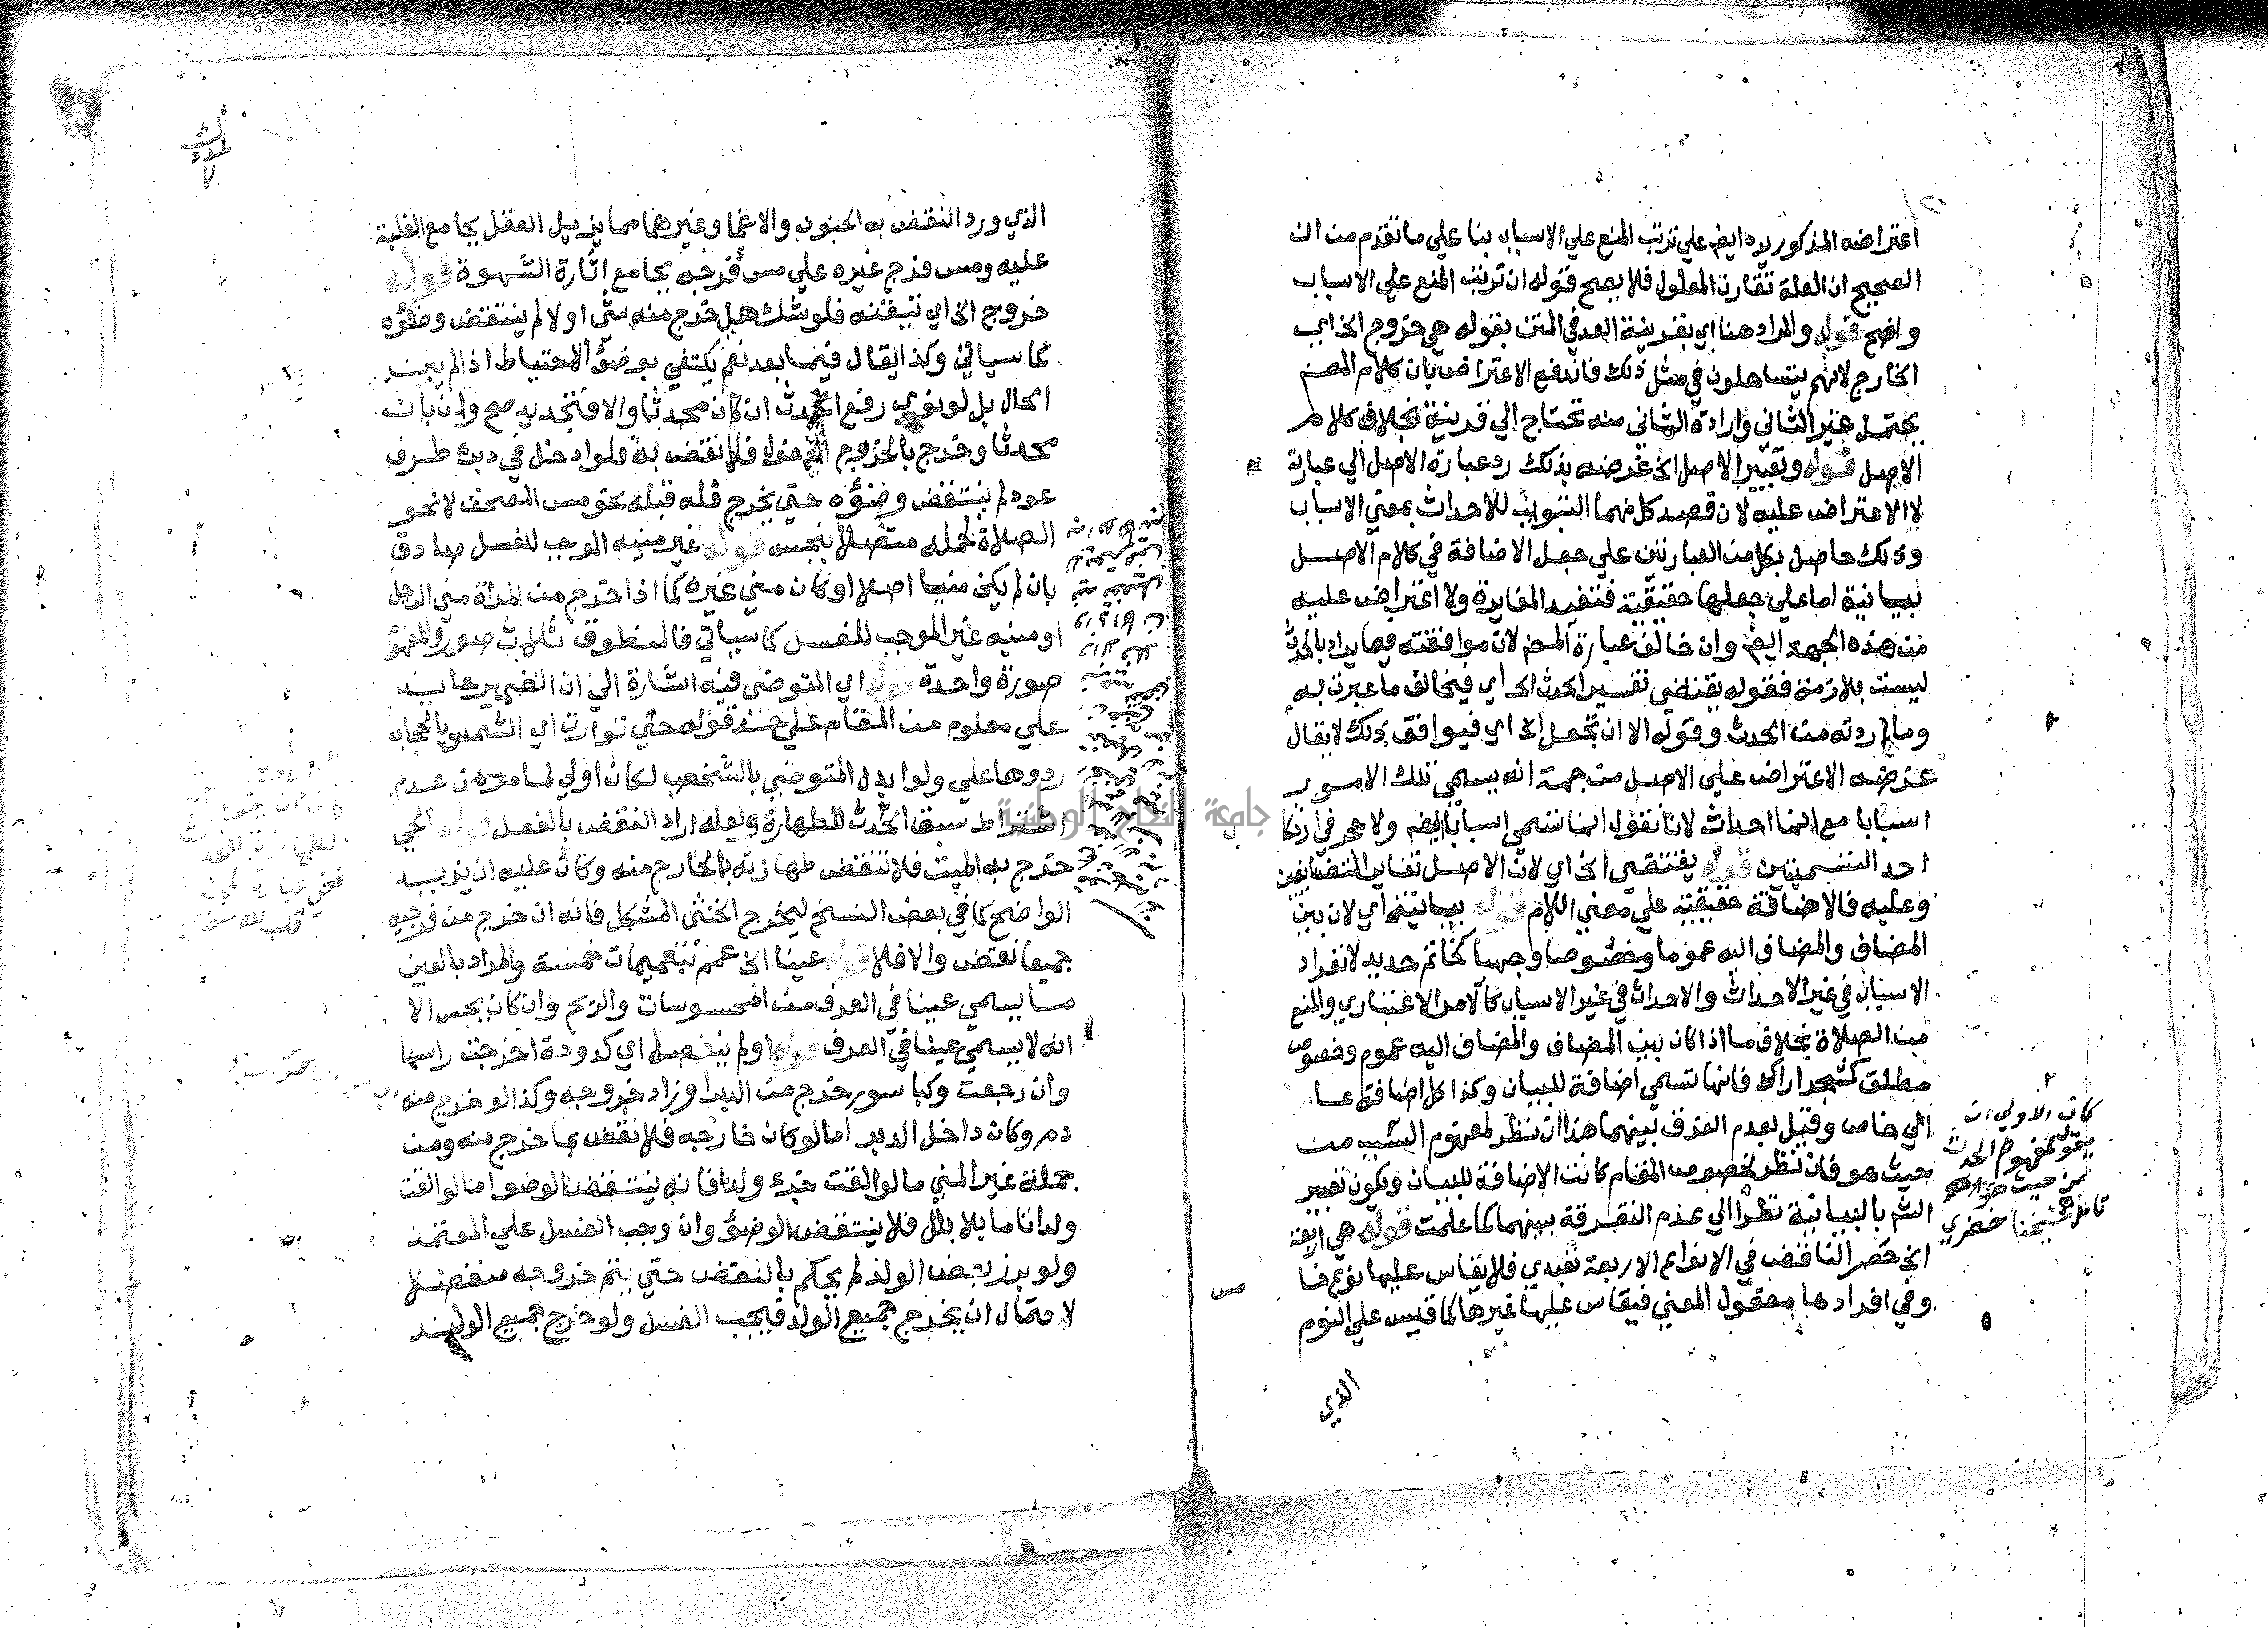 اعتراضه المذكور يرد ايضا علي ترتب المنع علي الاسباب بنا علي ما تقدم من ان
الصحيح ان العلة تقارن المعلول فلا يصح قوله ان ترتب المنع علي الاسباب
واضح قوله والمراد هنا اي بقرينة العد في المتن بقوله هي خروج الخ اي
الخارج لانهم يتساهلون في مثل ذلك فاندفع الاعتراض بان كلام المصـ
يحتمل غير الثاني وارادة الثاني منه تحتاج الي قرينة بخلاف كلام
الاصل قوله وتعبير الاصل الخ غرضه بذلك رد عبارة الاصل الي عبارته
لا الاعتراض عليه لان قصد كل منهما التبويب للاحداث بمعني الاسباب
وذلك حاصل بكل من العبارتين علي جعل الاضافة في كلام الاصل
بيانية اما علي جعلها حقيقية فتفيد المغايرة ولا اعتراض عليه
من هذه الجهة ايضا وان خالف عبارة المصـ لان موافقته فيما يراد بالحدث
ليست بلازمة فقوله يقتضي تفسير الحدث الخ اي فيخالف ما عبرت به
وما اردته من الحدث وقوله الا ان تجعل الخ اي فيوافق ذلك لا يقال
غرضه الاعتراض علي الاصل من جهة انه يسمي تلك الامور
اسبابا مع انها احداث لانا نقول انها تسمي اسبابا ايضا ولا حجر في ارتكا
احد التسميتين قوله يقتضي الخ اي لان الاصل تغاير المتضايفين
وعليه فالاضافة حقيقية علي معني اللام قوله بيانية اي لان بين
المضاف والمضاف اليه عموما وخصوصا وجهيا كخاتم حديد لانفراد
الاسباب في غير الاحداث والاحداث في غير الاسباب كالامر الاعتباري والمنع
من الصلاة بخلاف ما اذا كان بين المضاف والمضاف اليه عموم وخصوص
مطلق كشجر اراك فانها تسمي اضافة للبيان وكذا كل اضافة عا
الي خاص وقيل بعدم الفرق بينهما هذا ان نظر لمفهوم السبب من
حيث هو فان نظر لخصوص المقام كانت الاضافة للبيان ويكون تعبير
الشم بالبيانية نظرا الي عدم التفرقة بينهما كما علمت قوله هي اربعة
الخ حصر الناقض في الانواع الاربعة تعبدي فلا يقاس عليها نوع خا
وفي افرادها معقول المعني فيقاس عليها غيرها كما قيس علي النوم
الذي
كان الاولي ان
يقول لمفهوم الحدث
من حيث هو
تامل شيخنا خضري
الذي ورد النقض به الجنون والاغما وغيرهما مما يزيل العقل بجامع الغلبة
عليه ومس فرج غيره علي مس فرجه بجامع اثارة الشهوة قوله
خروج الخ اي تيقنه فلو شك هل خرج منه شئ او لا لم ينتقض وضؤه
كما سياتي وكذا يقال فيما بعد نعم يكتفي بوضؤ الاحتياط اذا لم يبن
الحال بل لو نوي رفع الحدث ان كان محدثا والا فتجديد صح وان بان
محدثا وخرج بالخروج الدخول فلا نقض به فلو ادخل في دبره طرف
عود لم ينتقض وضؤه حتي يخرج فله قبله نحو مس المصحف لا نحو
الصلاة لحمله متصلا بنجس قوله غير منيه الموجب للغسل صادق
بان لم يكن منيا اصلا او كان مني غيره كما اذا خرج من المراة مني الرجل
او منيه غير الموجب للغسل كما سياتي فالمنطوق ثلاث صور والمفهو
صورة واحدة قوله اي المتوضي فيه اشارة الي ان الضمير عايد
علي معلوم من المقام علي حد قوله حتي توارت اي الشمس بالحجاب
ردوها علي ولو ابدل المتوضي بالشخص لكان اولي لما مر من عدم
اشتراط سبق الحدث للطهارة ولعله اراد النقض بالفعل قوله الحي
خرج به الميت فلا تنتقض طهارته بالخارج منه وكان عليه ان يزيد
الواضح كما في بعض النسخ ليخرج الخنثي المشكل فانه ان خرج من فرجيه
جميعا نقض والا فلا قوله عينا الخ عمم بتعميمات خمسة والمراد بالعين
ما يسمي عينا في العرف من المحسوسات والريح وان كان يحس الا
انه لا يسمي عينا في العرف قوله او لم ينفصل اي كدودة اخرجت راسها
وان رجعت وكباسور خرج من الدبر او زاد خروجه وكذا لو خرج منه
دم وكان داخل الدبر اما لو كان خارجه فلا نقض بما خرج منه ومن
جملة غير المني ما لو القت جزء ولد فانه ينتقض الوضو اما لو القت
ولدا تاما بلا بلل فلا ينتقض الوضؤ وان وجب الغسل علي المعتمد
ولو برز بعض الولد لم يحكم بالنقض حتي يتم خروجه منفصلا
لاحتمال ان يخرج جميع الولد فيجب الغسل ولو خرج جميع الولد